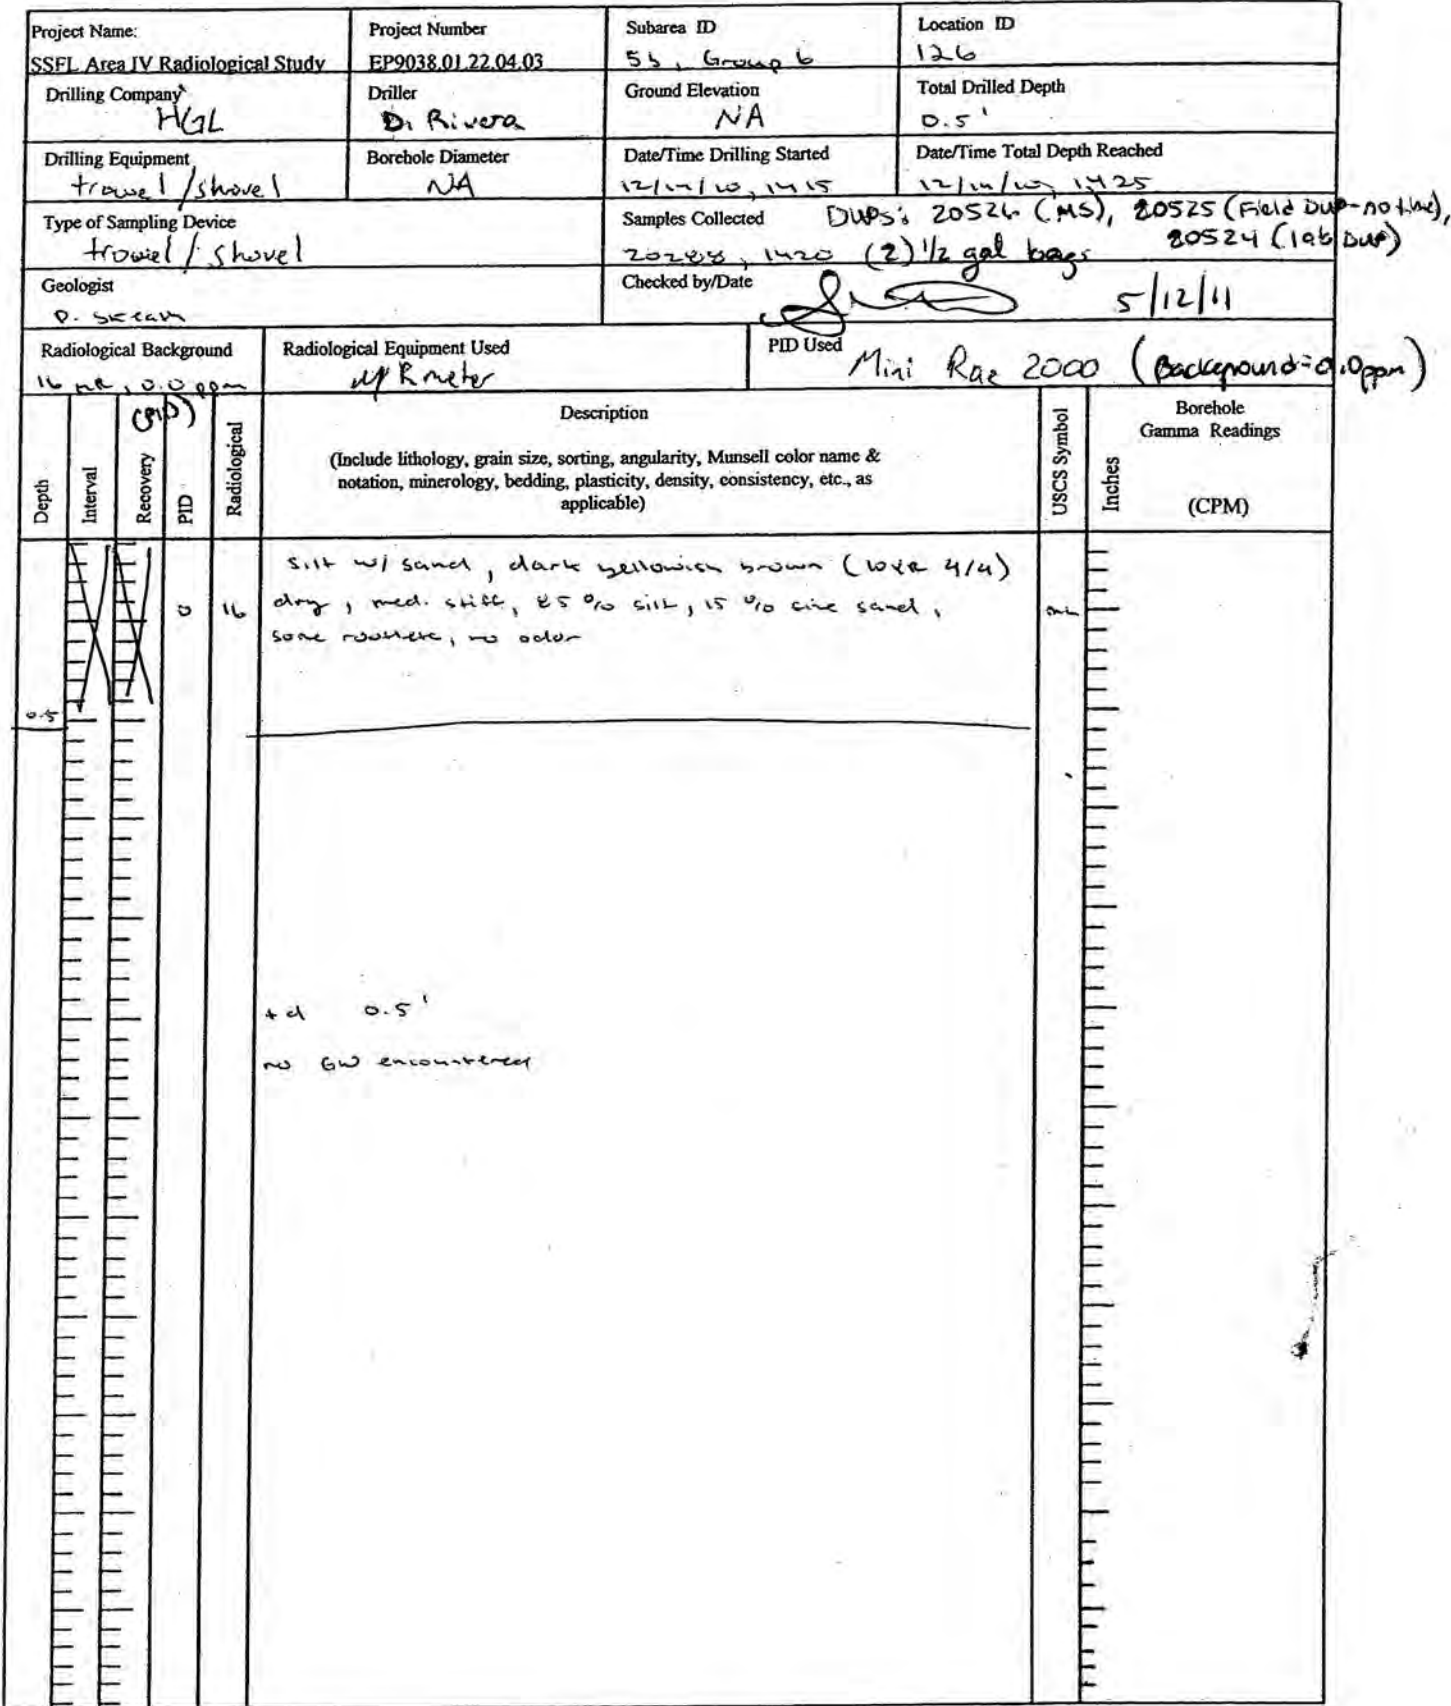 Project Name:
SSFL Area IV Radiological Study
Project Number
EP9038.01.22.04.03
Subarea ID
5b, Group 6
Location ID
126
Drilling Company
HGL
Driller
D. Rivera
Ground Elevation
NA
Total Drilled Depth
0.5'
Drilling Equipment
trowel / shovel
Borehole Diameter
NA
Date/Time Drilling Started
12/14/10, 1415
Date/Time Total Depth Reached
12/14/10, 1425
Type of Sampling Device
trowel / shovel
Samples Collected
DUPS: 20526 (MS), 20525 (Field DUP-no time),
20524 (lab Dup)
1420 (2) 1/2 gal bags
Geologist
Checked by/Date
5/12/11
Radiological Background
16 μR, 0.0 ppm
(PID)
Radiological Equipment Used
μR meter
PID Used
Mini Rae 2000 (Background=0.0ppm)
Depth
Interval
Recovery
PID
Radiological
Description
(Include lithology, grain size, sorting, angularity, Munsell color name &
notation, minerology, bedding, plasticity, density, consistency, etc., as
applicable)
USCS Symbol
Inches
Borehole
Gamma Readings
(CPM)
silt w/ sand, dark yellowish brown (10YR 4/4)
0 16 dry, med. stiff, 85 % silt, 15 % fine sand, ML
some rootlets, no odor
0.5
td 0.5'
no GW encountered